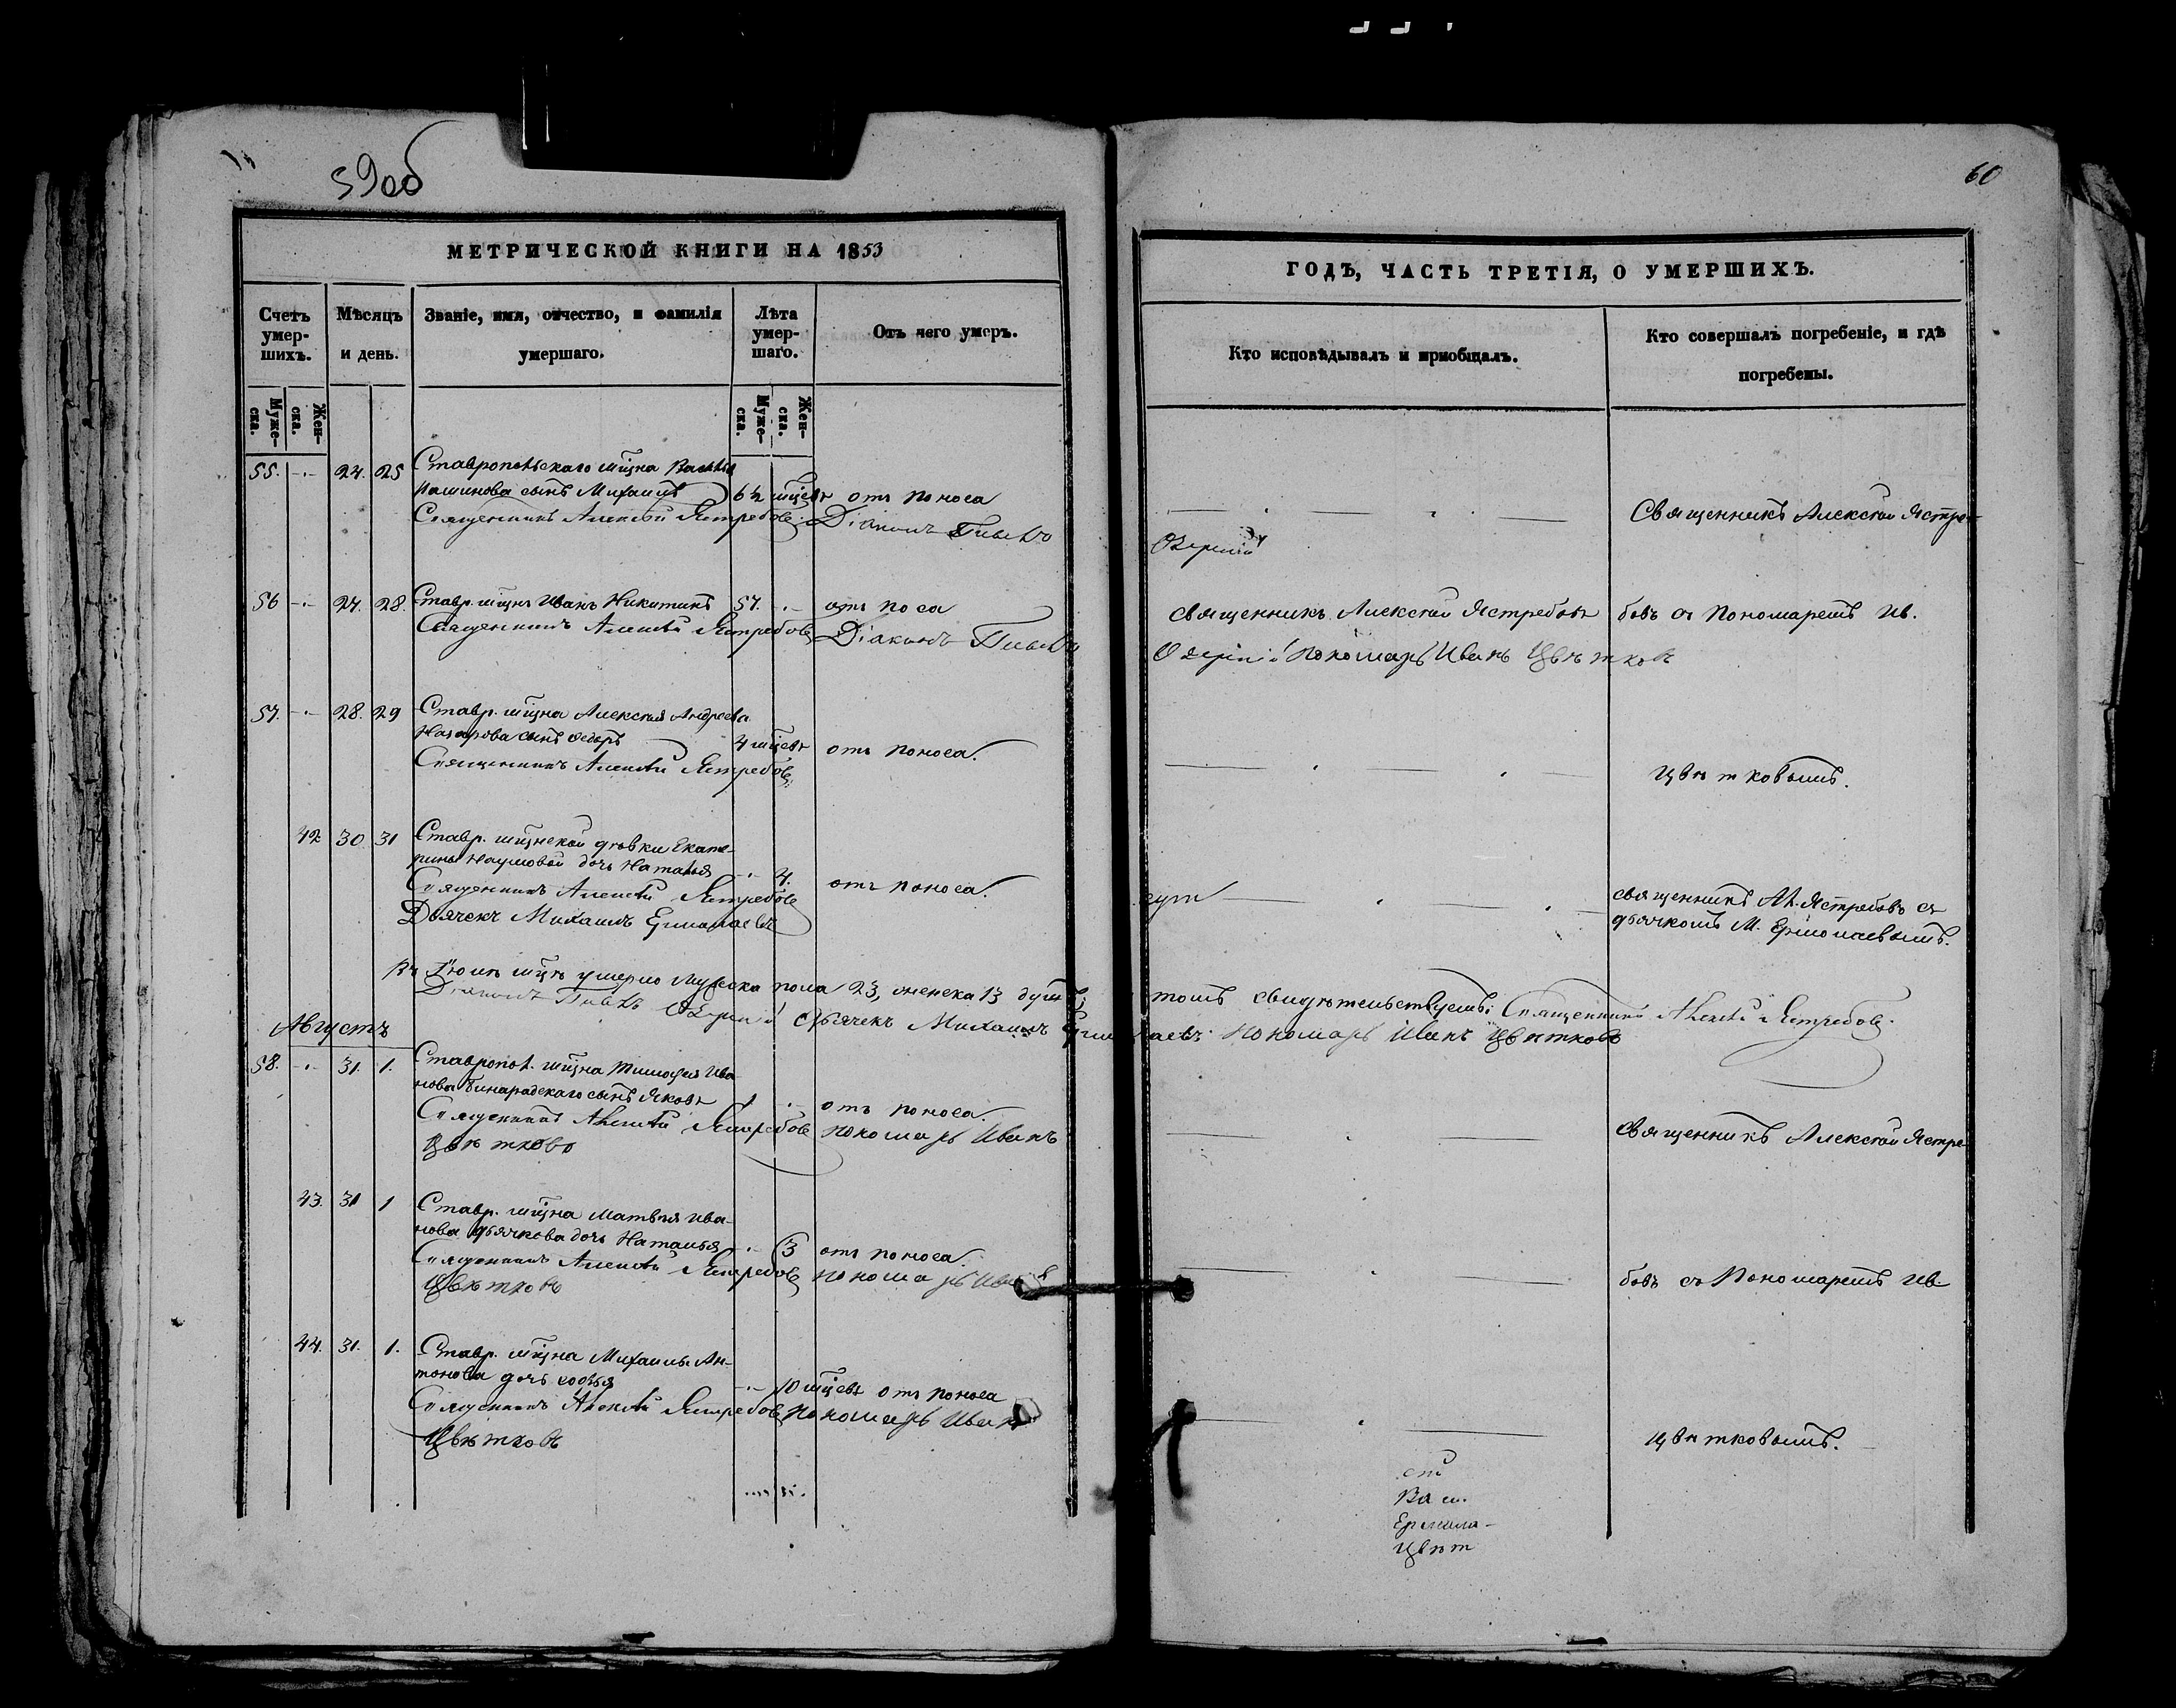 59об
МЕТРИЧЕСКОЙ КНИГИ НА 1853
Счетъ умершихъ.
Мужеска.
Женска.
Мѣсяцъ и день.
Званіе, имя, отчество, и фамилія умершаго.
Лѣта умершаго.
Мужеска.
Женска.
Отъ чего умеръ.
55. -.- 24. 25 Ставропольскаго мщна
сынъ Михаилъ 6½ мцевъ отъ поноса
Священникъ Алексѣй Ястребовъ. Діаконъ
56 -.- 27. 28. Ставр. мщнъ Иванъ Никитинъ 57. -.- отъ поса
Священникъ Алексѣй Ястребовъ Діаконъ
57. -.- 28. 29 Ставр. мщна Алексѣя Андреева
Назарова сынъ Ѳедоръ 4 мцевъ отъ поноса.
Священникъ Алексѣй Ястребовъ.
42 30 31 Ставр. мщнской дѣвки Екате-
рины Наумовой дочь Наталья -.- 4. отъ поноса.
Священникъ Алексѣй Ястребовъ
Дьячекъ Михаилъ Ермолаевъ
Въ Іюлѣ мцѣ умерло мужеска пола 23, женска 13 душъ;
Діаконъ Дьячекъ Михаилъ Ермолаевъ.
Августъ
58. -.- 31. 1. Ставропол. мщна Тимофея Ива-
нова Бинарадскаго сынъ Яковъ 1 -.- отъ поноса.
Священникъ Алексѣй Ястребовъ пономарь Иванъ
Цвѣтковъ
43. 31 1 Ставр. мщна Матвѣя Ива-
нова Дьячкова дочь Наталья -.- 3 отъ поноса.
Священникъ Алексѣй Ястребовъ пономарь Иванъ
Цвѣтковъ
44. 31. 1. Ставр. мщна Михаила Ан-
тонова дочь Софья -.- 10 мцевъ отъ поноса
Священникъ Алексѣй Ястребовъ пономарь Иванъ
Цвѣтковъ
60
ГОДЪ, ЧАСТЬ ТРЕТІЯ, О УМЕРШИХЪ.
Кто исповѣдывалъ и приобщалъ.
Кто совершалъ погребеніе, и гдѣ погребены.
Священникъ Алексѣй Ястре-
священникъ Алексѣй Ястребовъ
бовъ съ Пономаремъ Ив.
пономарь Иванъ Цвѣтковъ
Цвѣтковымъ.
священникъ Ал. Ястребовъ съ
дьячкомъ М. Ермолаевымъ.
томъ свидѣтельствуемъ: Священникъ Алексѣй Ястребовъ.
Пономарь Иванъ Цвѣтковъ
Священникъ Алексѣй Ястре-
бовъ съ Пономаремъ Ив.
Цвѣтковымъ.
Ермола-
Цвѣт